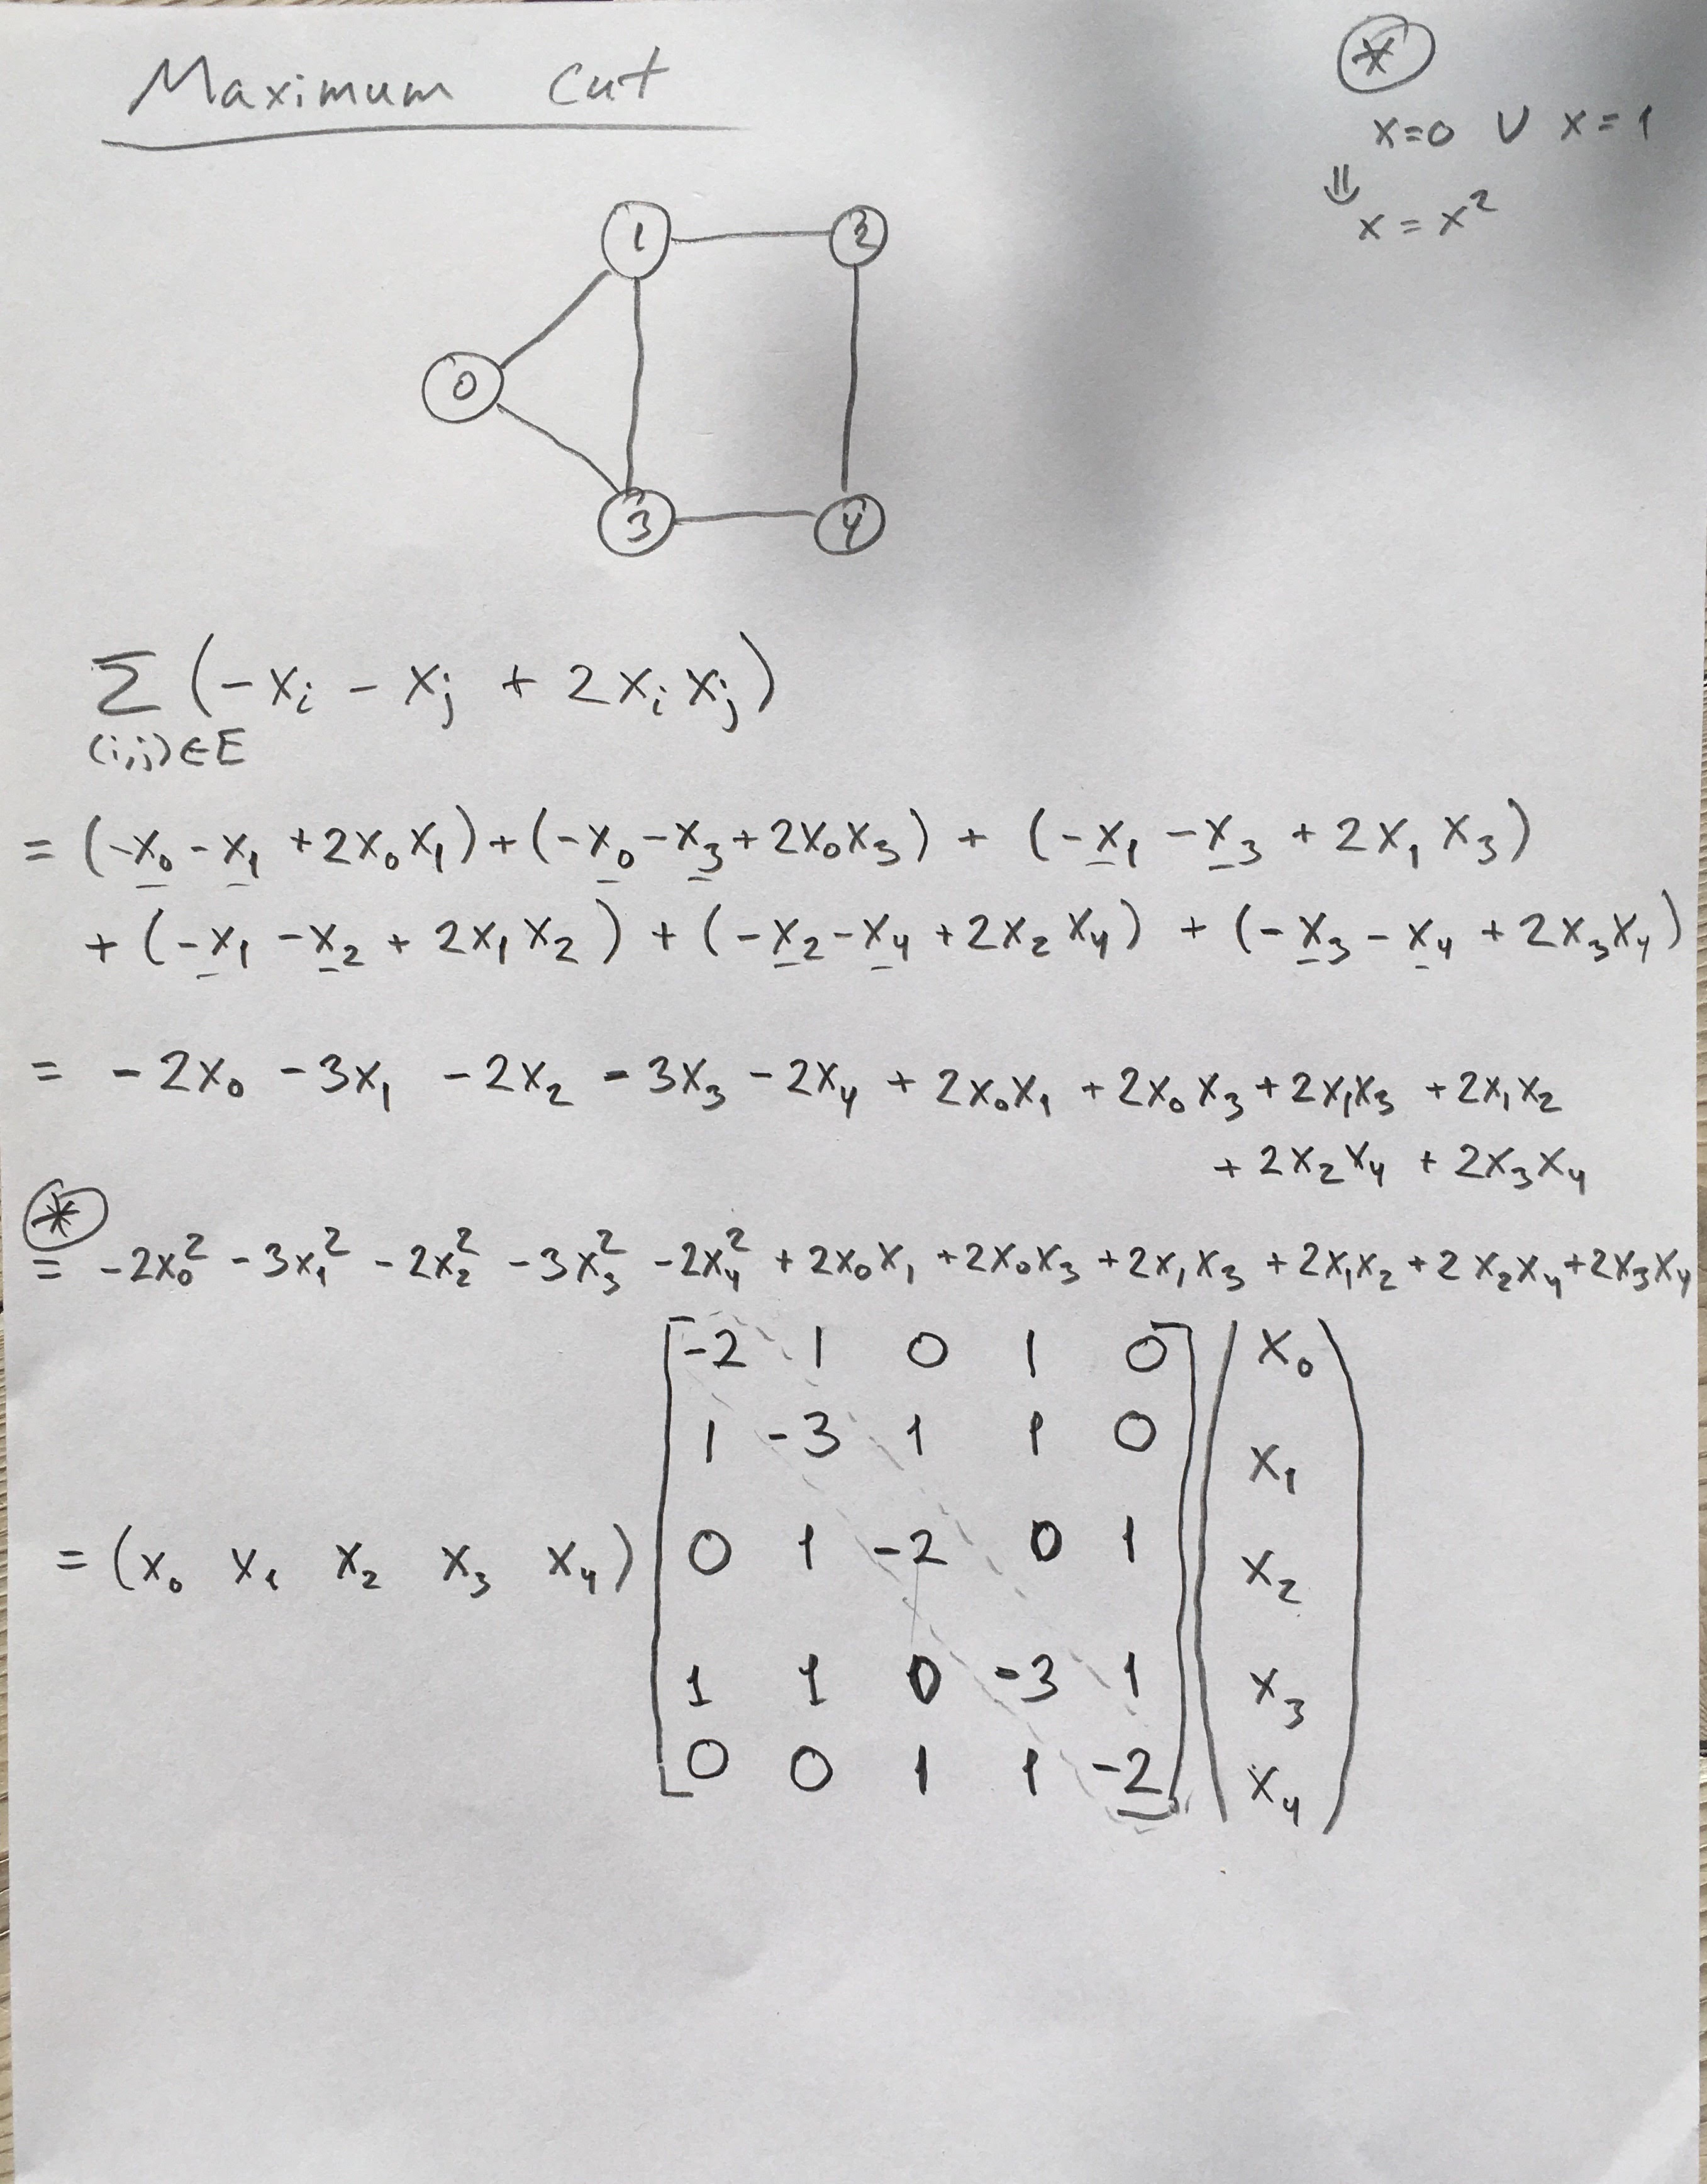 Maximum cut
*
x=0 ∨ x=1
⇓
x = x²
1 2
0
3 4
Σ (-xᵢ - xⱼ + 2xᵢ xⱼ)
(i,j)∈E
= (-x₀ - x₁ + 2x₀x₁) + (-x₀ - x₃ + 2x₀x₃) + (-x₁ - x₃ + 2x₁x₃)
+ (-x₁ - x₂ + 2x₁x₂) + (-x₂ - x₄ + 2x₂x₄) + (-x₃ - x₄ + 2x₃x₄)
= -2x₀ - 3x₁ - 2x₂ - 3x₃ - 2x₄ + 2x₀x₁ + 2x₀x₃ + 2x₁x₃ + 2x₁x₂
+ 2x₂x₄ + 2x₃x₄
*
= -2x₀² - 3x₁² - 2x₂² - 3x₃² - 2x₄² + 2x₀x₁ + 2x₀x₃ + 2x₁x₃ + 2x₁x₂ + 2x₂x₄ + 2x₃x₄
-2 1 0 1 0 x₀
1 -3 1 1 0 x₁
= (x₀ x₁ x₂ x₃ x₄) 0 1 -2 0 1 x₂
1 1 0 -3 1 x₃
0 0 1 1 -2 x₄